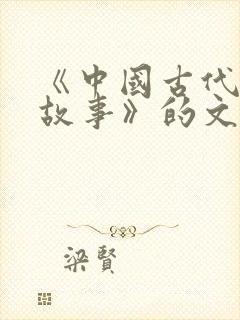 《中國古代
故事》的文
梁賢